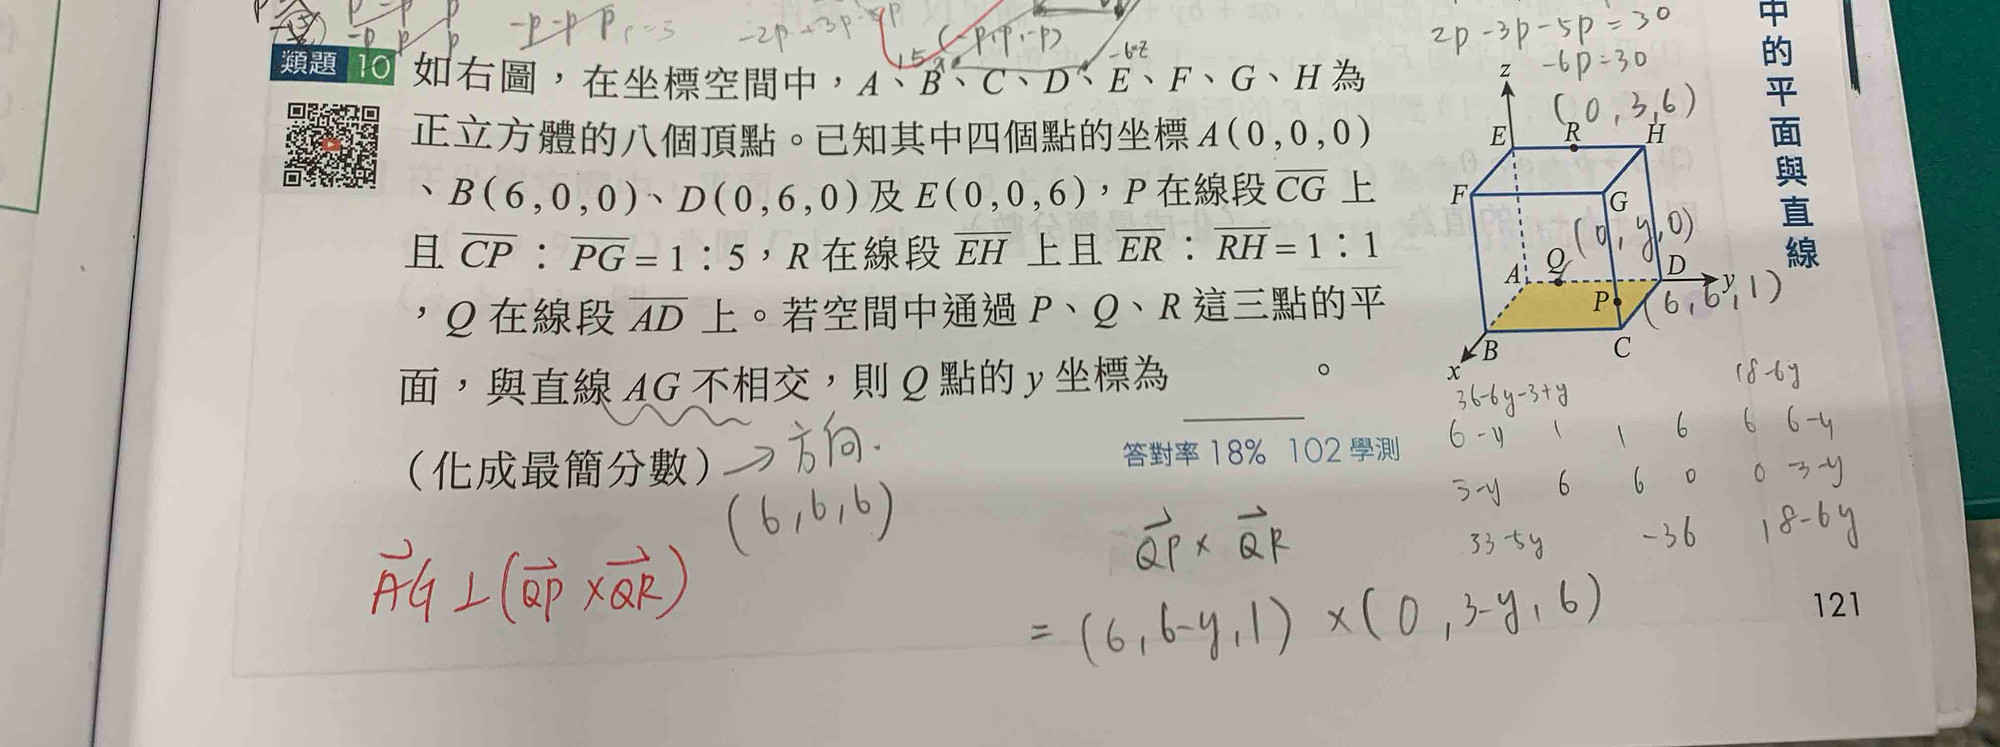 2p-3p-5p=30
-6p=30
類題 10 如右圖,在坐標空間中,A、B、C、D、E、F、G、H為
正立方體的八個頂點。已知其中四個點的坐標A(0,0,0)
、B(6,0,0)、D(0,6,0)及E(0,0,6),P在線段CG上
且CP:PG=1:5,R在線段EH上且ER:RH=1:1
,Q在線段AD上。若空間中通過P、Q、R這三點的平
面,與直線AG不相交,則Q點的y坐標為 。
(化成最簡分數)
→方向.
(6,6,6)
答對率18% 102學測
z
(0,3,6)
E R H
F G
(0,y,0)
A Q D y
P (6,6,1)
B C
x
36-6y-3+y
18-6y
6-y 1 1 6 6 6-y
3-y 6 6 0 0 3-y
33-5y -36 18-6y
AG⊥(QP×QR)
QP×QR
=(6,6-y,1)×(0,3-y,6)
中的平面與直線
121